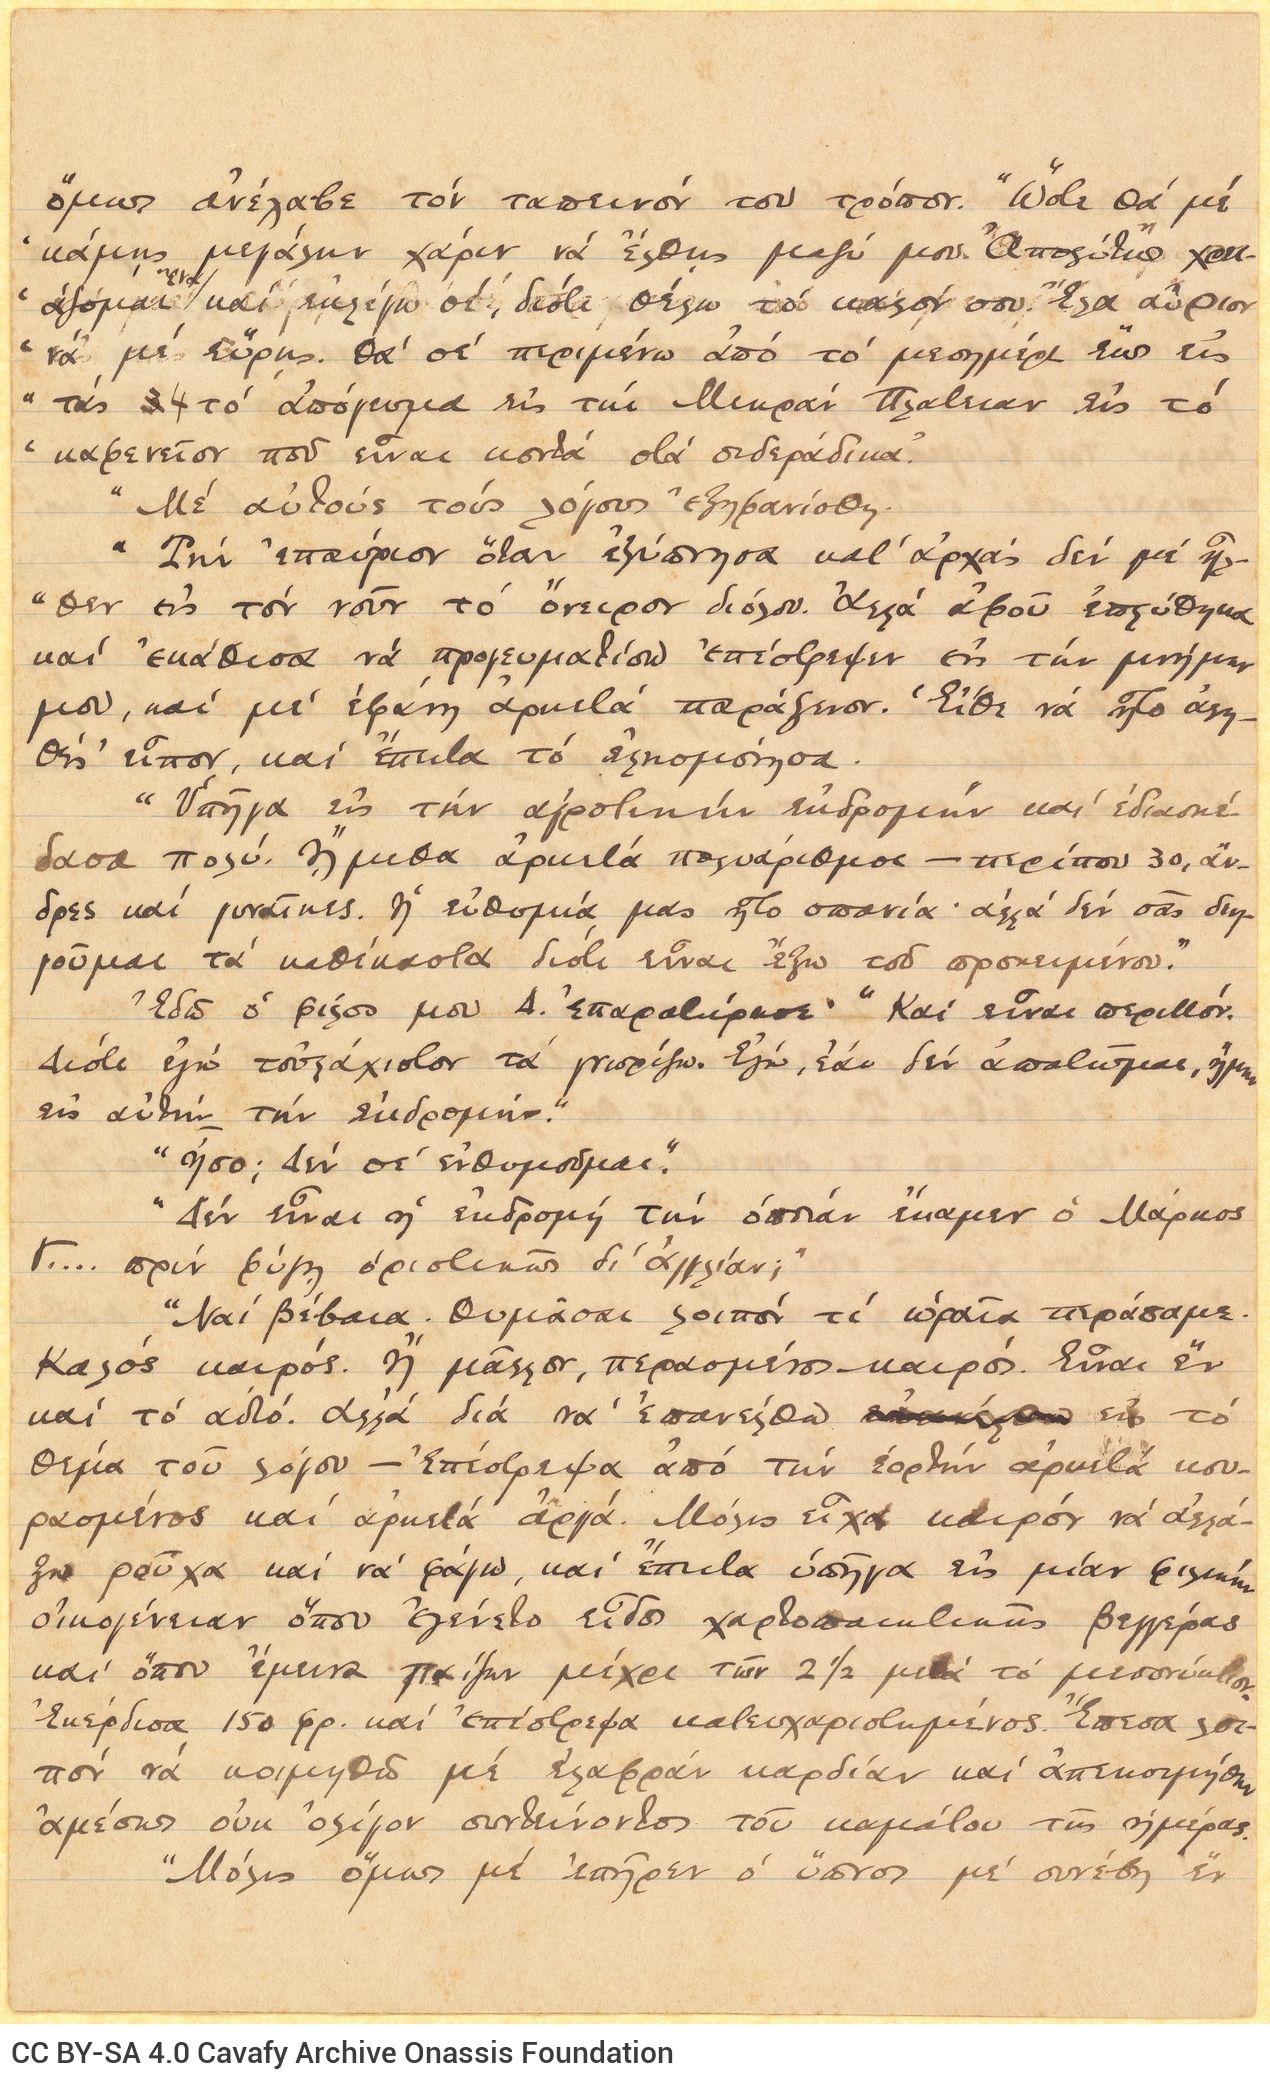 ὅμως ἀνέλαβε τόν ταπεινόν του τρόπον. "Ὥστε θά μέ
‘ κάμῃς μεγάλην χάριν νά ἔλθῃς μαζύ μου. Ἀπολύτως χρει-
‘ άζομαι ἕνα/ καί ἐκλέγω σέ, διότι θέλω τό καλόν σου. Ἔλα αὔριον
‘ νά μέ εὕρῃς. Θά σέ περιμένω ἀπό τό μεσημέρι ἕως εἰς
“ τάς 4 τό ἀπόγευμα εἰς τήν Μικράν Πλατεῖαν εἰς τό
‘ καφενεῖον ποῦ εἶναι κοντά στά σιδεράδικα.’
“ Μέ αὐτούς τούς λόγους ἐξηφανίσθη.
“ Τήν ἐπαύριον ὅταν ἐξύπνησα κατ’ ἀρχάς δέν μέ ἦλ-
“ θεν εἰς τόν νοῦν τό ὄνειρον διόλου. Ἀλλά ἀφοῦ ἐπλύθηκα
καί ἐκάθισα νά προγευματίσω ἐπέστρεψεν εἰς τήν μνήμην
μου, καί μέ ἐφάνη ἀρκετά παράξενον. ‘Εἴθε νά ἦτο ἀλη-
θές’ εἶπον, καί ἔπειτα τό ἐλησμόνησα.
“ Ὑπῆγα εἰς τήν ἀγροτικήν ἐκδρομήν καί ἐδιασκέ-
δασα πολύ. Ἤμεθα ἀρκετά πολυάριθμοι — περίπου 30, ἄν-
δρες καί γυναῖκες. Ἡ εὐθυμία μας ἦτο σπανία· ἀλλά δέν σᾶς διη-
γοῦμαι τά καθέκαστα διότι εἶναι ἔξω τοῦ προκειμένου.”
Ἐδῶ ὁ φίλος μου Δ. ἐπαρατήρησε· “Καί εἶναι περιττόν.
Διότι ἐγώ τοὐλάχιστον τά γνωρίζω. Ἐγώ, ἐάν δέν ἀπατῶμαι, ἤμην
εἰς αὐτήν τήν ἐκδρομήν.”
“Ἦσο; Δέν σέ ἐνθυμοῦμαι.”
“Δέν εἶναι ἡ ἐκδρομή τήν ὁποίαν ἔκαμεν ὁ Μάρκος
Γ.... πρίν φύγῃ ὁριστικῶς δι’ Ἀγγλίαν;”
“Ναί βέβαια. Θυμᾶσαι λοιπόν τί ὡραῖα περάσαμε.
Καλός καιρός. Ἤ μᾶλλον, περασμένος καιρός. Εἶναι ἕν
καί τό αὐτό. Ἀλλά διά νά ἐπανέλθω εἰς τό
θέμα τοῦ λόγου — Ἐπέστρεψα ἀπό τήν ἑορτήν ἀρκετά κου-
ρασμένος καί ἀρκετά ἀργά. Μόλις εἶχα καιρόν νά ἀλλά-
ξω ροῦχα καί νά φάγω, καί ἔπειτα ὑπῆγα εἰς μίαν φιλικήν
οἰκογένειαν ὅπου ἐγένετο εἶδος χαρτοπαικτικῆς βεγγέρας
καί ὅπου ἔμεινα παίζων μέχρι τῶν 2 1/2 μετά τό μεσονύκτιον.
Ἐκέρδισα 150 φρ. καί ἐπέστρεψα κατευχαριστημένος. Ἔπεσα λοι-
πόν νά κοιμηθῶ μέ ἐλαφράν καρδίαν καί ἀπεκοιμήθην
ἀμέσως οὐκ ὀλίγον συντείνοντος τοῦ καμάτου τῆς ἡμέρας.
“Μόλις ὅμως μέ ἐπῆρεν ὁ ὕπνος μέ συνέβη ἕν
CC BY-SA 4.0 Cavafy Archive Onassis Foundation